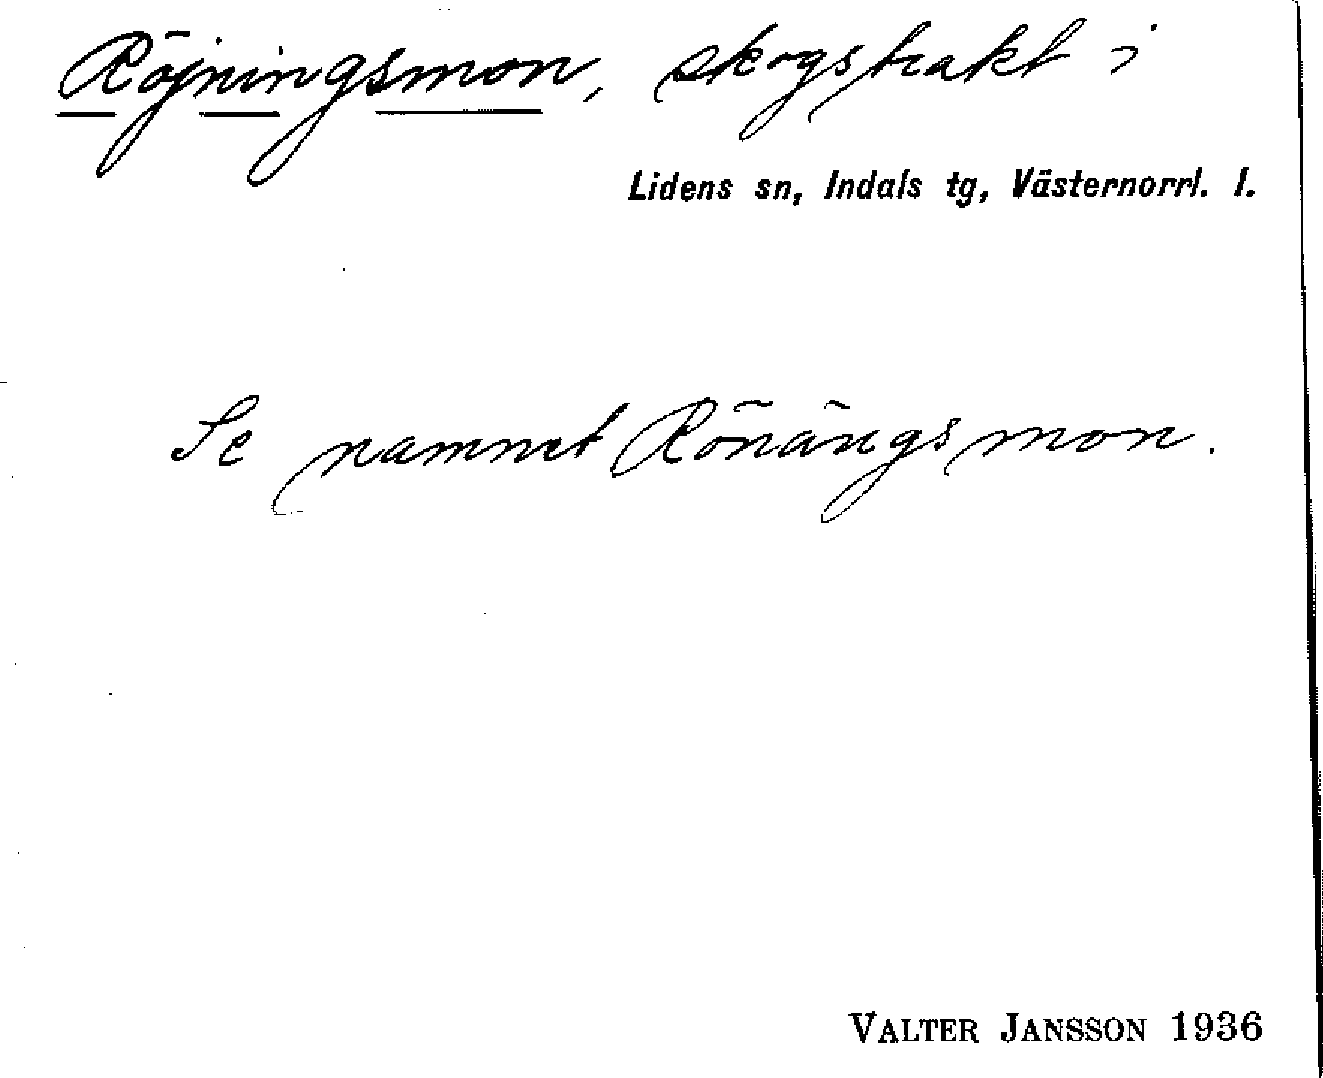 Röjningsmon, skogstrakt i
Lidens sn, Indals tg, Västernorrl. l.
Se namnet Rönängsmon.
VALTER JANSSON 1936